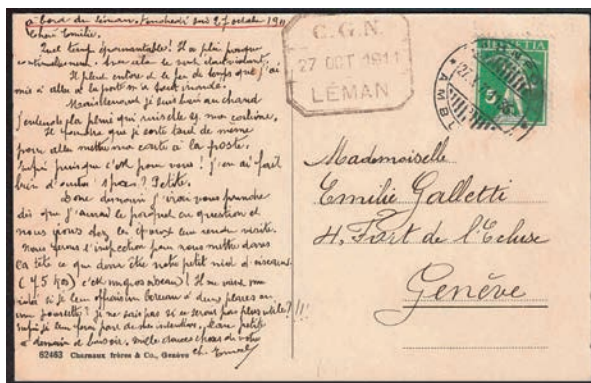 à bord du Léman. Vendredi soir 27 octobre 1911
Chère Emilie.
Quel temps épouvantable! Il a plu presque
continuellement. Avec cela le vent était violent.
Il pleut encore et le peu de temps que j'ai
mis à aller à la poste m'a tout inondé.
Maintenant je suis bien au chaud
j'entends la pluie qui ruisselle
Il faudra que je sorte tout de même
pour aller mettre ma carte à la poste.
puisque c'est pour vous! j'en ai fait
bien d'autres
Donc demain j'irai vous prendre
dès que j'aurai le en question et
nous irons chez les rendre visite.
Nous ferons l'inspection pour nous mettre dans
la tête ce que doit être notre petit nid d'oiseaux
(75 kos) c'est un gros oiseau! Il me vient une
idée si je leur offrais un berceau à deux places ou
une poussette? je ne sais pas si ce serait pas plus utile? !!!
petite
à demain
62463 Charnaux frères & Co., Genève
C.G.N.
27 OCT 1911
LÉMAN
HELVETIA
5
AMBT
Mademoiselle
Emilie Galletti
4, Fort de l'Ecluse
Genève